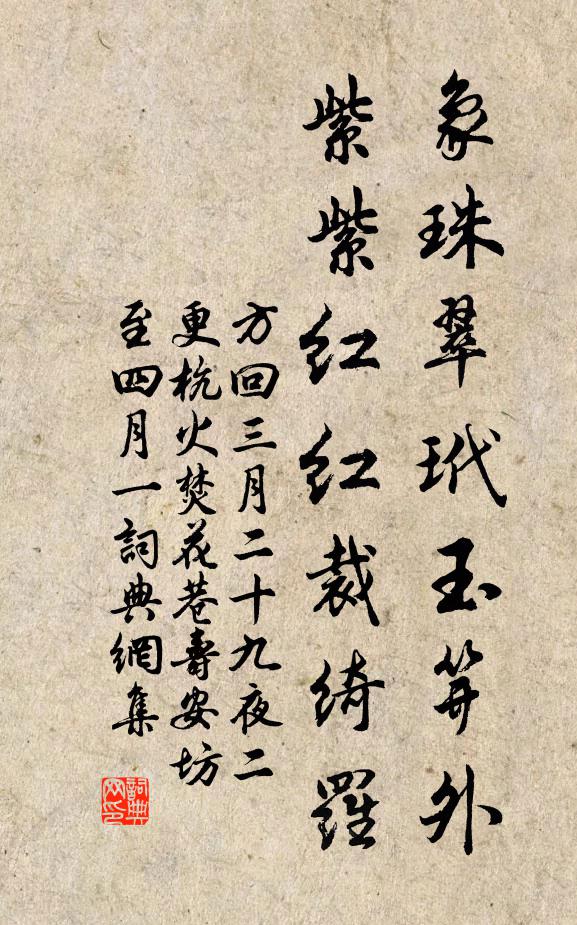 象珠翠玳玉笄外
紫紫红红裁绮羅
方回三月二十九夜二
更杭火焚花巷壽安坊
至四月一詞典網集
詞典网印